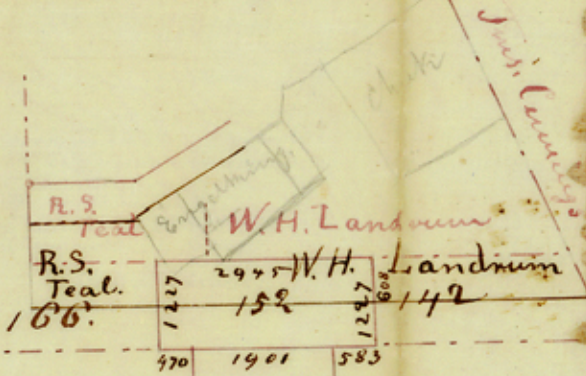 Jas. Cummings
R.S.
Teal
W.H. Landrum
R.S.
Teal.
166.
2945
W.H. Landrum
1227
152
1227
608
142
470
1901
583